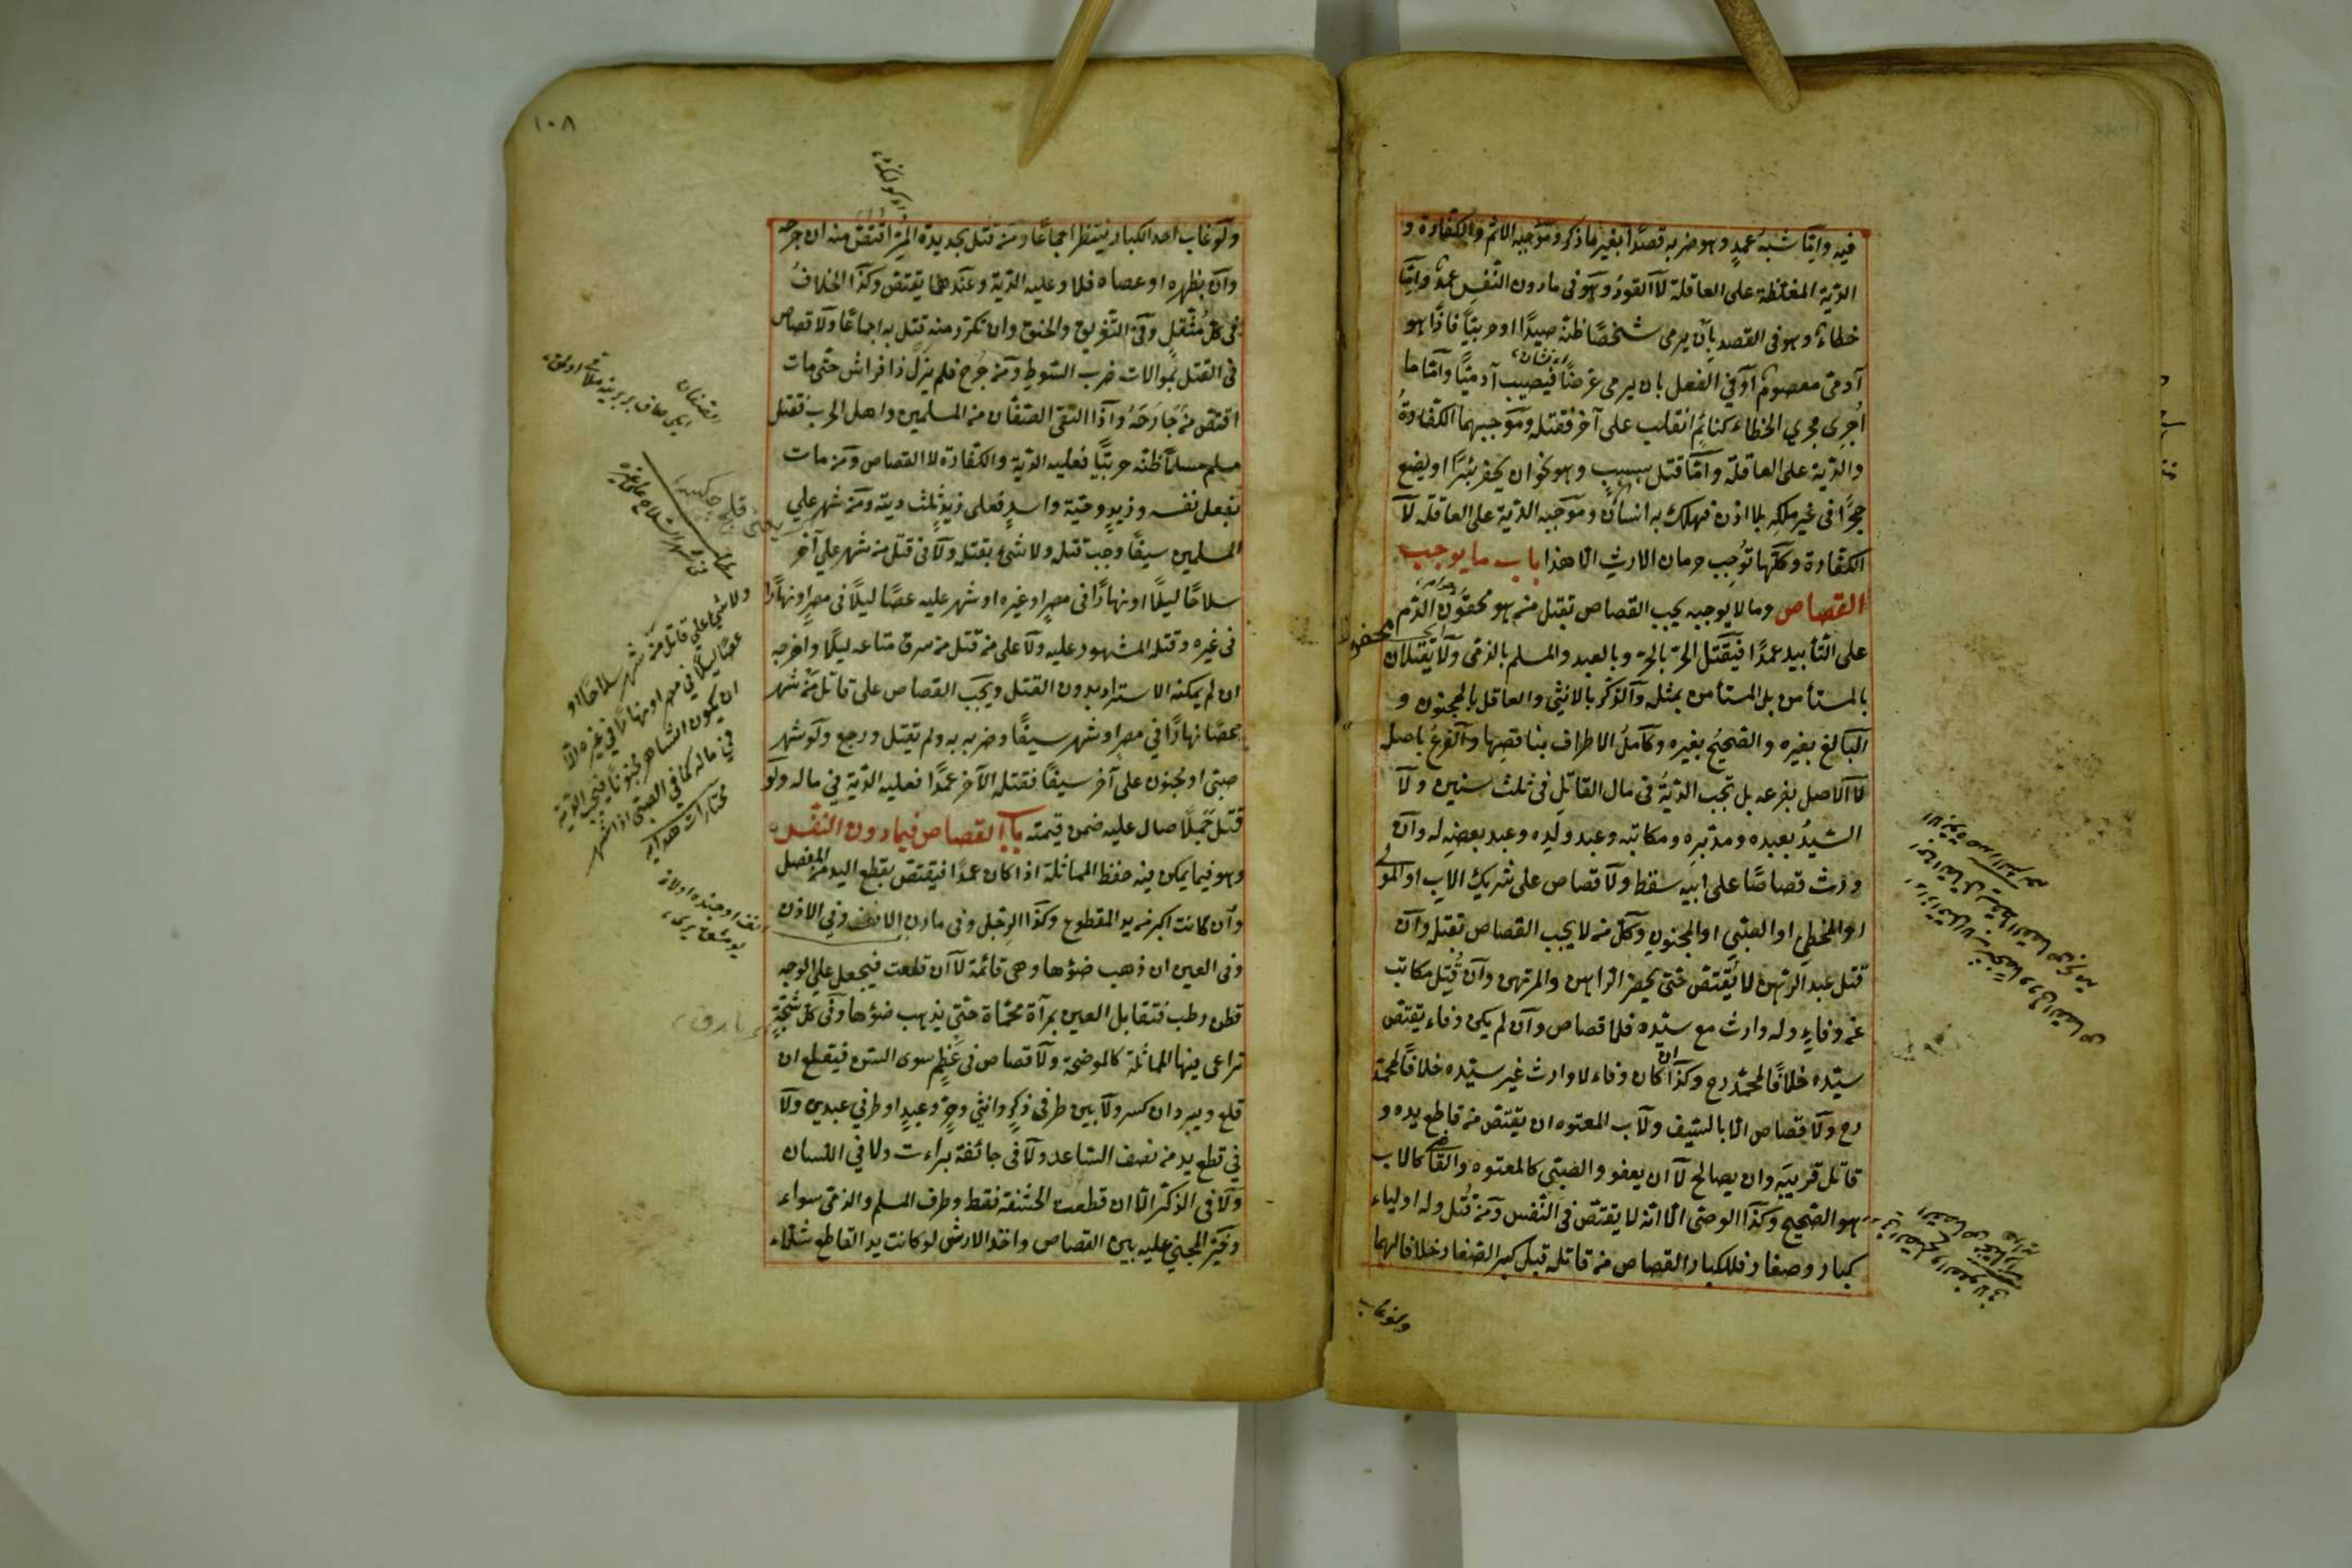 فيه واما شبه عمد وهو ضربه قصدا بغير ما ذكر وموجبه الاثم والكفارة و
الدية المغلظة على العاقلة لا القود وهو فى ما دون النفس عمد واما
خطاء وهو فى القصد بان يرمى شخصا ظنه صيدا او حربيا فاذا هو
آدمى معصوم او فى الفعل بان يرمى غرضا فيصيب آدميا واما ما
اجرى مجرى الخطاء كنائم انقلب على آخر فقتله وموجبهما الكفارة
والدية على العاقلة واما قتل بسبب وهو نحو ان يحفر بئرا او يضع
حجرا فى غير ملكه بلا اذن فهلك به انسان وموجبه الدية على العاقلة لا
الكفارة وكلها توجب حرمان الارث الا هذا باب ما يوجب
القصاص وما لا يوجبه يجب القصاص بقتل من هو محقون الدم
على التأبيد عمدا فيقتل الحر بالحر وبالعبد والمسلم بالذمى ولا يقتلان
بالمستأمن بل المستأمن بمثله والذكر بالانثى والعاقل بالمجنون و
البالغ بغيره والصحيح بغيره وكامل الاطراف بناقصها والفرع باصله
لا الاصل بفرعه بل تجب الدية فى مال القاتل فى ثلث سنين ولا
السيد بعبده ومدبره ومكاتبه وعبد ولده وعبد بعضه له وان
ورث قصاصا على ابيه سقط ولا قصاص على شريك الاب او المولى
او المخطئ او الصبى او المجنون وكل من لا يجب القصاص بقتله وان
قتل عبد الرهن لا يقتص حتى يحضر الراهن والمرتهن وان قتل مكاتب
عن وفاء وله وارث مع سيده فلا قصاص وان لم يكن وفاء يقتص
سيده خلافا لمحمد رح وكذا ان كان وفاء لا وارث غير سيده خلافا لمحمد
رح ولا قصاص الا بالسيف ولاب المعتوه ان يقتص من قاطع يده و
قاتل قريبه وان يصالح لا ان يعفو والصبى كالمعتوه والقاضى كالاب
هو الصحيح وكذا الوصى الا انه لا يقتص فى النفس ومن قتل وله اولياء
كبار وصغار فللكبار القصاص من قاتله قبل كبر الصغار خلافا لهما
ولو غاب
١٠٨
ولو غاب احد الكبار ينتظر اجماعا ومن قتل بحديدة المر اقتص منه ان جرحه
وان بظهره او عصاه فلا وعليه الدية وعندهما يقتص وكذا الخلاف
فى كل مثقل وفى التغريق والخنق وان تكرر منه قتل به اجماعا ولا قصاص
فى القتل بموالات ضرب السوط ومن جرح فلم يزل ذا فراش حتى مات
اقتص من جارحه واذا التقى الصفان من المسلمين واهل الحرب فقتل
مسلم مسلما ظنه حربيا فعليه الدية والكفارة لا القصاص ومن مات
بفعل نفسه وزيد وحية واسد فعلى زيد ثلث ديته ومن شهر على
المسلمين سيفا وجب قتله ولا شئ بقتله ولا فى قتل من شهر على آخر
سلاحا ليلا او نهارا فى مصر او غيره او شهر عليه عصا ليلا فى مصر او نهارا
فى غيره وقتله المشهور عليه ولا على من قتل من سرق متاعه ليلا واخرجه
ان لم يمكنه الاسترداد بدون القتل ويجب القصاص على قاتل من شهر
عصا نهارا فى مصر او شهر سيفا وضربه به ولم يقتل ورجع ولو شهر
صبى او مجنون على آخر سيفا فقتله الآخر عمدا فعليه الدية فى ماله ولو
قتل جملا صال عليه ضمن قيمته باب القصاص فيما دون النفس
وهو فيما يمكن فيه حفظ المماثلة اذا كان عمدا فيقتص بقطع اليد من المفصل
وان كانت اكبر من يد المقطوع وكذا الرجل وفى مارن الانف وفى الاذن
وفى العين ان ذهب ضوؤها وهى قائمة لا ان قلعت فيجعل على الوجه
قطن رطب فتقابل العين بمرآة محماة حتى يذهب ضوؤها وفى كل شجة
تراعى فيها المماثلة كالموضحة ولا قصاص فى عظم سوى السن فيقلع ان
قلع ويبرد ان كسر ولا بين طرفى ذكر وانثى وحر وعبد او طرفى عبدين ولا
فى قطع يد من نصف الساعد ولا فى جائفة براءت ولا فى اللسان
ولا فى الذكر الا ان قطعت الحشفة فقط وطرف المسلم والذمى سواء
وخير المجنى عليه بين القصاص واخذ الارش لو كانت يد القاطع شلاء
الصفان
ولا شئ على قاتل من شهر سلاحا او
عصا ليلا فى مصر او نهارا فى غيره الا
ان يكون الشاهر مجنونا فيجب الدية
فى ماله كما فى الصبى اذا شهر
مختارات هدايه